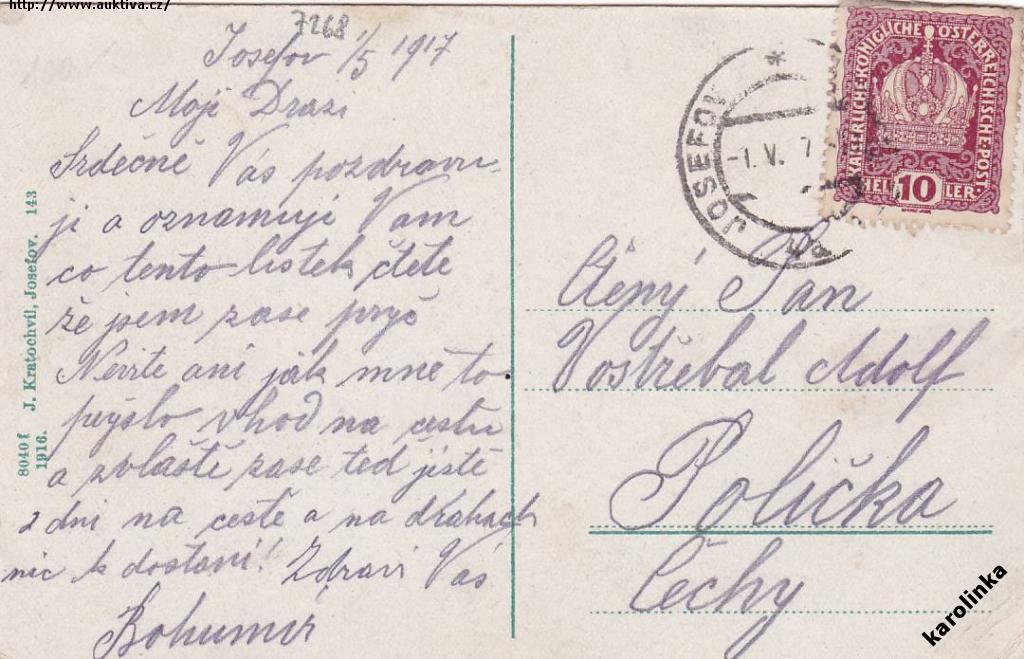 http://www.auktiva.cz/
7268
Josefov 1/5 1917
Moji Drazi
Srdečně Vás pozdravu-
ji a oznamuji Vam
co tento listek čtete
že jsem zase pryč
Nevite ani jak mne to
přyšlo vhod na cestu
a zvláště zase ted jistě
2 dni na cestě a na drahach
nic k dostani! Zdravi Vás
Bohumir
8040f J. Kratochvíl, Josefov. 143
1916.
JOSEFOV
-1.V. 7
KAISERLICHE KÖNIGLICHE ÖSTERREICHISCHE POST
HEL 10 LER
Ctěný Pan
Vostřebal Adolf
Polička
Čechy
karolinka